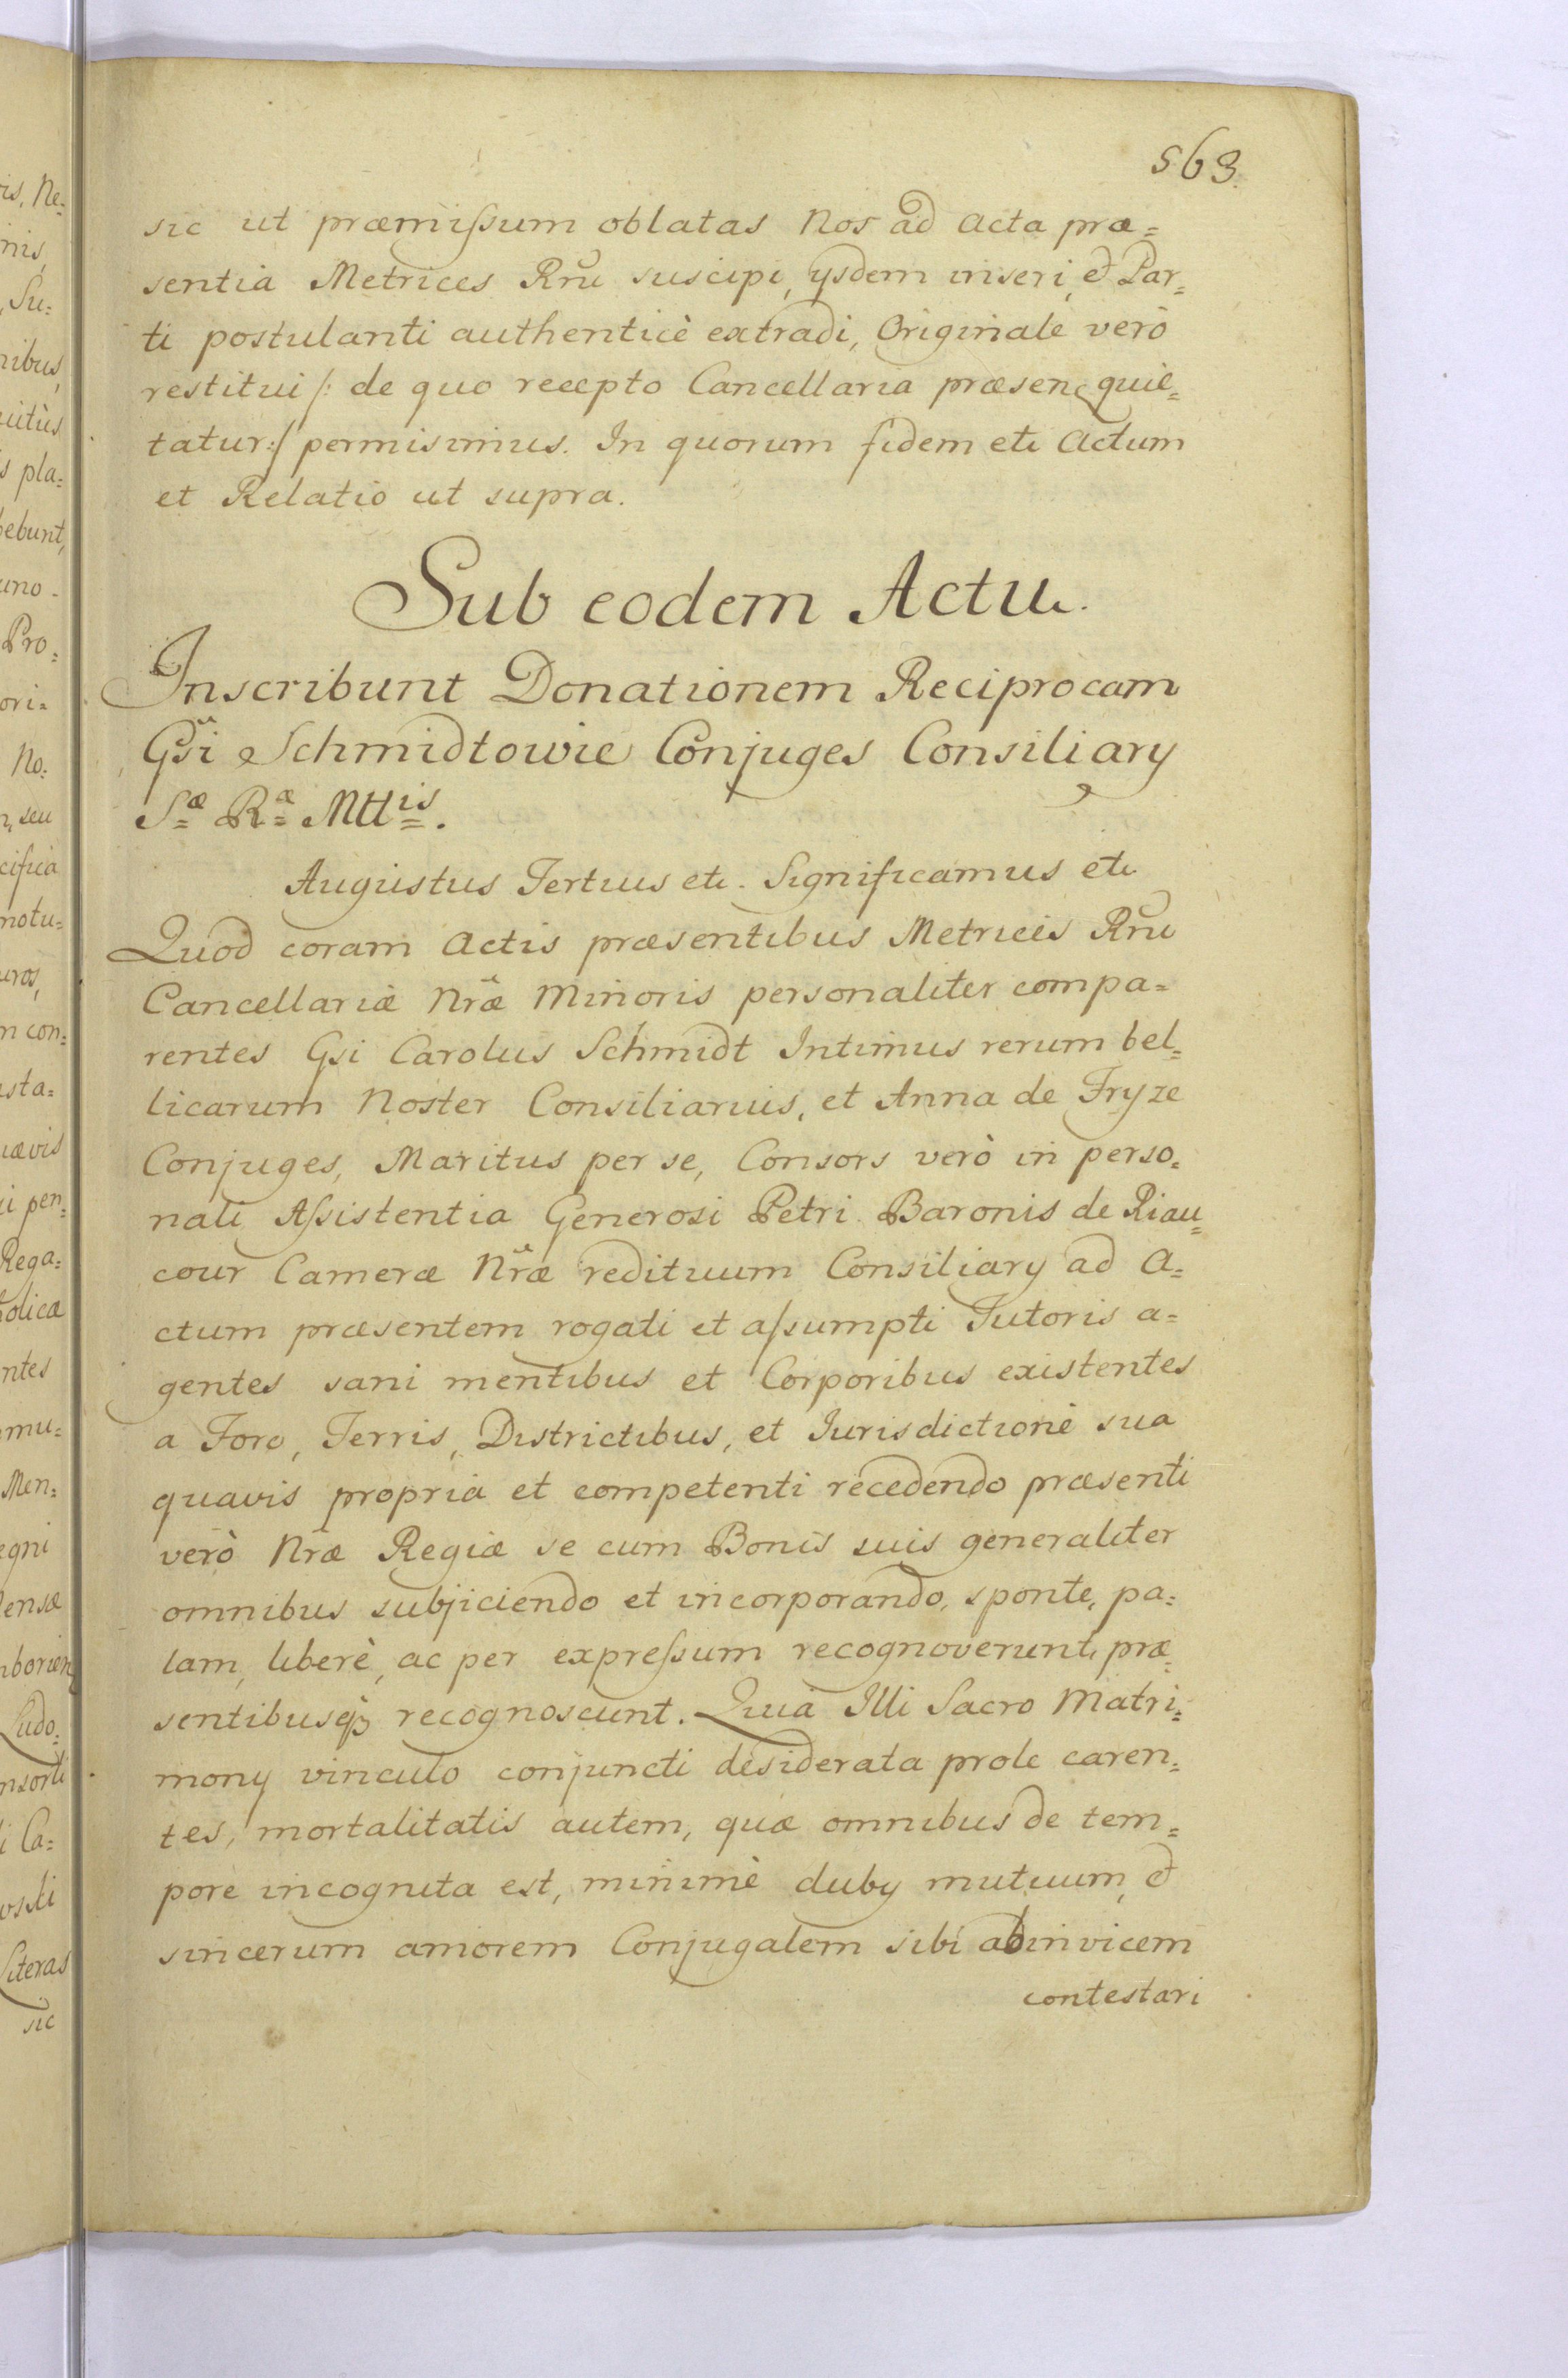 563.
sic ut præmissum oblatas Nos ad Acta præ=
sentia Metrices Rnu suscipi, ysdem inseri, et Par=
ti postulanti authenticè extradi, Originale verò
restitui /: de quo recepto Cancellaria præsen quie=
tatur :/ permisimus. In quorum fidem etc Actum
et Relatio ut supra.
Sub eodem Actu.
Inscribunt Donationem Reciprocam
Gsi Schmidtowie Conjuges Consiliary
Sæ Ræ Mttis.
Augustus Tertius etc. Significamus etc
Quod coram Actis præsentibus Metrices Rnu
Cancellariæ Nræ Minoris personaliter compa=
rentes Gsi Carolus Schmidt Intimus rerum bel=
licarum Noster Consiliarius, et Anna de Fryze
Conjuges, Maritus per se, Consors verò in perso=
nali Assistentia Generosi Petri Baronis de Riau=
cour Cameræ Nræ redituum Consiliary ad A=
ctum præsentem rogati et assumpti Tutoris a=
gentes sani mentibus et Corporibus existentes
a Foro, Terris, Districtibus, et Iurisdictione sua
quavis propria et competenti recedendo præsenti
verò Nræ Regiæ se cum Bonis suis generaliter
omnibus subjiciendo et incorporando, sponte, pa=
lam, liberè, ac per expressum recognoverunt, præ=
sentibusq3 recognoscunt. Quia Illi Sacro Matri=
mony vinculo conjuncti desiderata prole caren=
tes, mortalitatis autem, quæ omnibus de tem=
pore incognita est, minimè duby mutuum, et
sincerum amorem Conjugalem sibi abinvicem
contestari